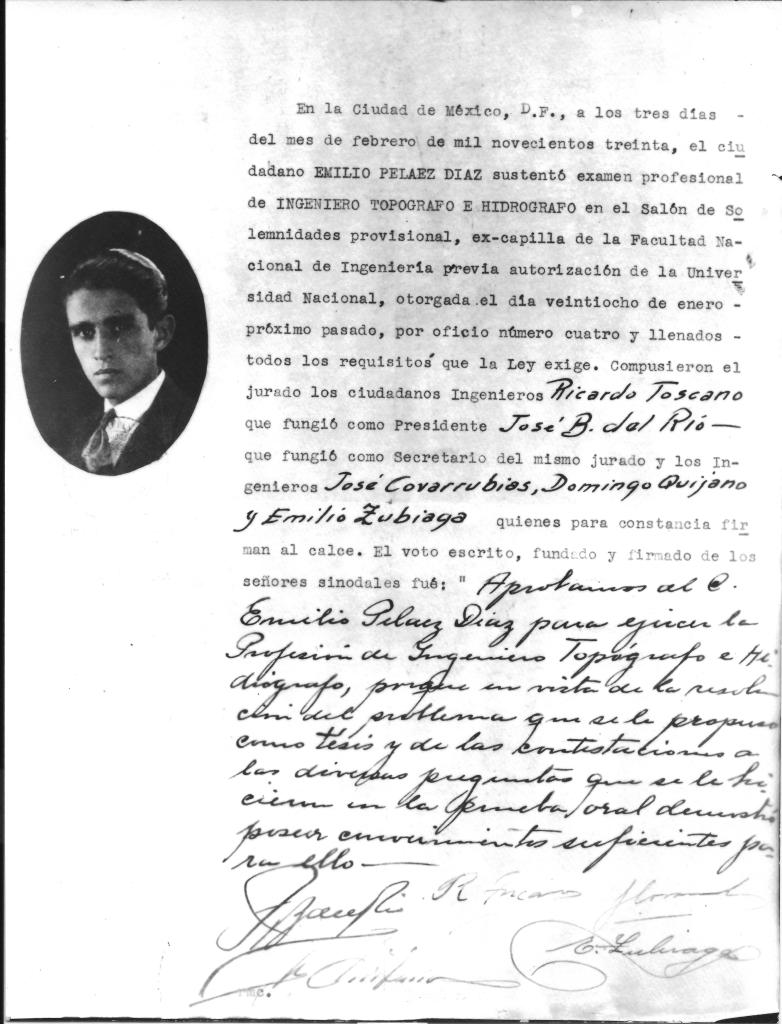 En la Ciudad de México, D.F., a los tres días -
del mes de febrero de mil novecientos treinta, el ciu
dadano EMILIO PELAEZ DIAZ sustentó examen profesional
de INGENIERO TOPOGRAFO E HIDROGRAFO en el Salón de So
lemnidades provisional, ex-capilla de la Facultad Na-
cional de Ingeniería previa autorización de la Univer
sidad Nacional, otorgada el día veintiocho de enero -
próximo pasado, por oficio número cuatro y llenados -
todos los requisitos que la Ley exige. Compusieron el
jurado los ciudadanos Ingenieros Ricardo Toscano
que fungió como Presidente José B. del Rió —
que fungió como Secretario del mismo jurado y los In-
genieros José Covarrubias, Domingo Quijano
y Emilió Zubiaga quienes para constancia fir
man al calce. El voto escrito, fundado y firmado de los
señores sinodales fué: " Aprobamos al C.
Emilio Pelaez Diaz para ejercer la
Profesión de Ingeniero Topógrafo e Hi-
drógrafo, porque en vista de la resolu
ción del problema que se le propuso
como tésis y de las contestaciones a
las diversas preguntas que se le hi-
cieron en la prueba oral demostró
poseer conocimientos suficientes pa-
ra ello —
R Toscano
E. Zubiaga
Quijano
rmc.